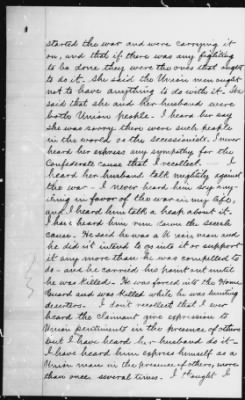 started the war and were carrying it
on, and that if there was any fighting
to be done they were the ones that ought
to do it. She said the Union men ought
not to have anything to do with it. She
said that she and her husband were
both Union people. I heard her say
she was sorry there were such people
in the world as the secessionists. I never
heard her express any sympathy for the
Confederate cause that I recollect. I
heard her husband talk mightily against
the war - I never heard him say any-
thing in favor of the war in my life,
and I heard him talk a heap about it.
I have heard him run down the
cause. He said he was a man and
he did not intend to go into it or support
it any more than he was compelled to
do - and he carried his point out until
he was killed. He was forced into the Home
Guard and was killed while he was hunting
deserters. I don't recollect that I ever
heard the claimant give expression to
Union sentiments in the presence of others
but I have heard her husband do it -
I have heard him express himself as a
Union man in the presence of others, more
than once several times. I thought I